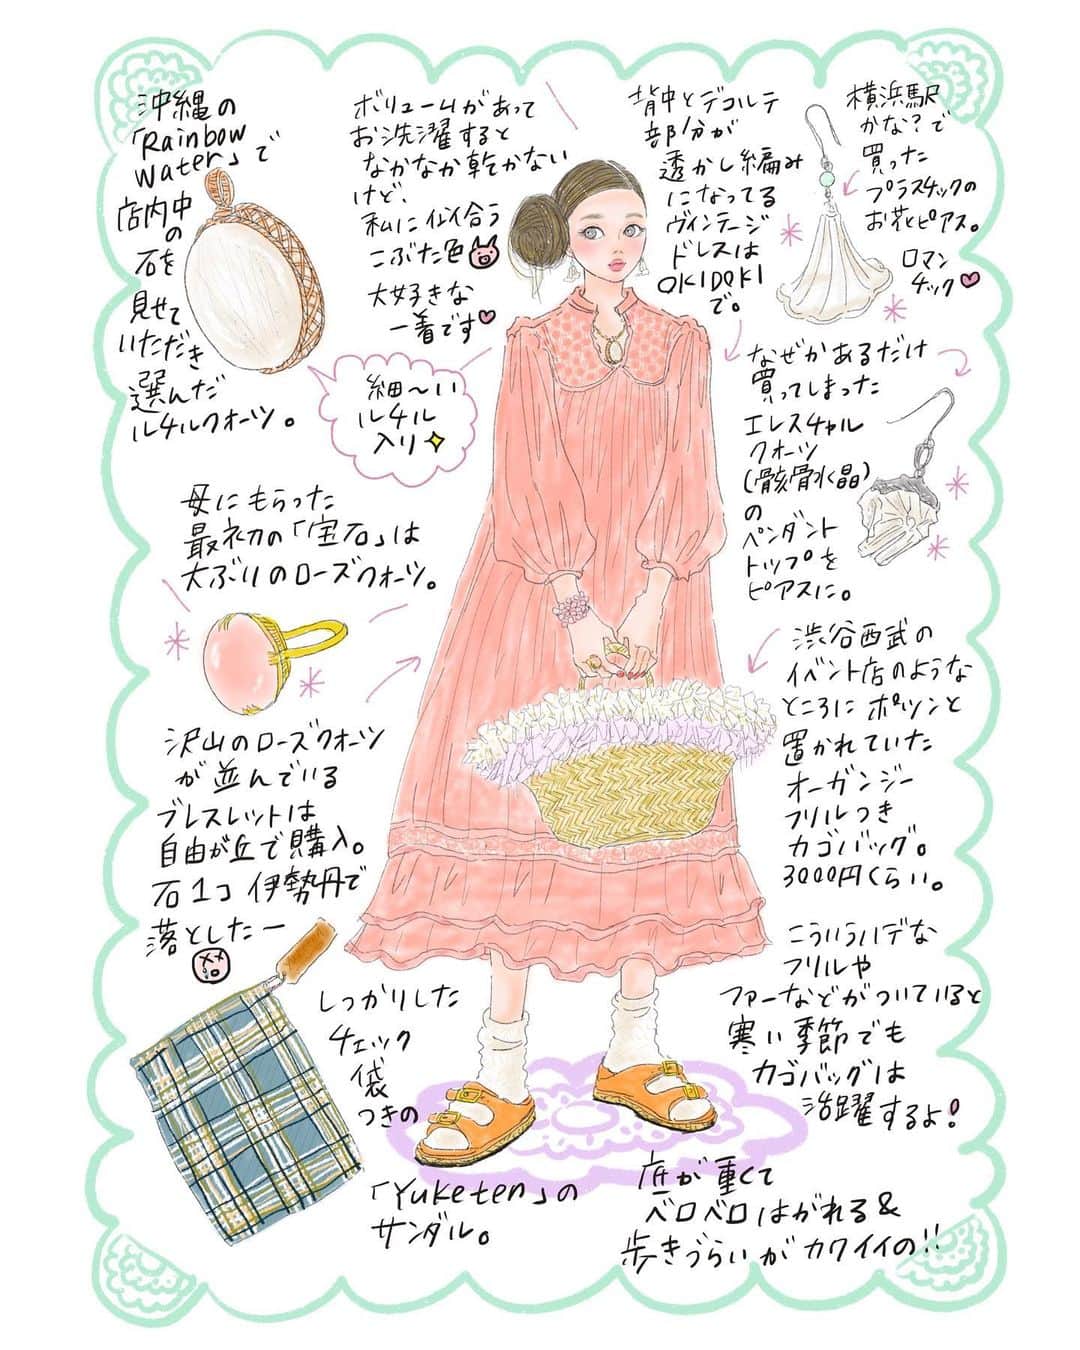 沖縄の
「Rainbow
Water」で
店内中
の
石を
見せて
いただき
選んだ
ルチルクォーツ。
ボリュームがあって
お洗濯すると
なかなか乾かない
けど、
私に似合う
こぶた色
大好きな
一着です
細〜い
ルチル
入り
背中とデコルテ
部分が
透かし編み
になってる
ヴィンテージ
ドレスは
OKIDOKI
で。
横浜駅
かな?で
買った
プラスチックの
お花ピアス。
ロマン
チック
なぜかあるだけ
買ってしまった
エレスチャル
クォーツ
(骸骨水晶)
の
ペンダント
トップを
ピアスに。
母にもらった
最初の「宝石」は
大ぶりのローズクォーツ。
沢山のローズクォーツ
が並んでいる
ブレスレットは
自由が丘で購入。
石1コ伊勢丹で
落としたー
渋谷西武の
イベント店のような
ところにポツンと
置かれていた
オーガンジー
フリルつき
カゴバッグ。
3000円くらい。
こういうハデな
フリルや
ファーなどがついていると
寒い季節でも
カゴバッグは
活躍するよ!
しっかりした
チェック
袋
つきの
「Yuketen」の
サンダル。
底が重くて
ベロベロはがれる&
歩きづらいがカワイイの!!